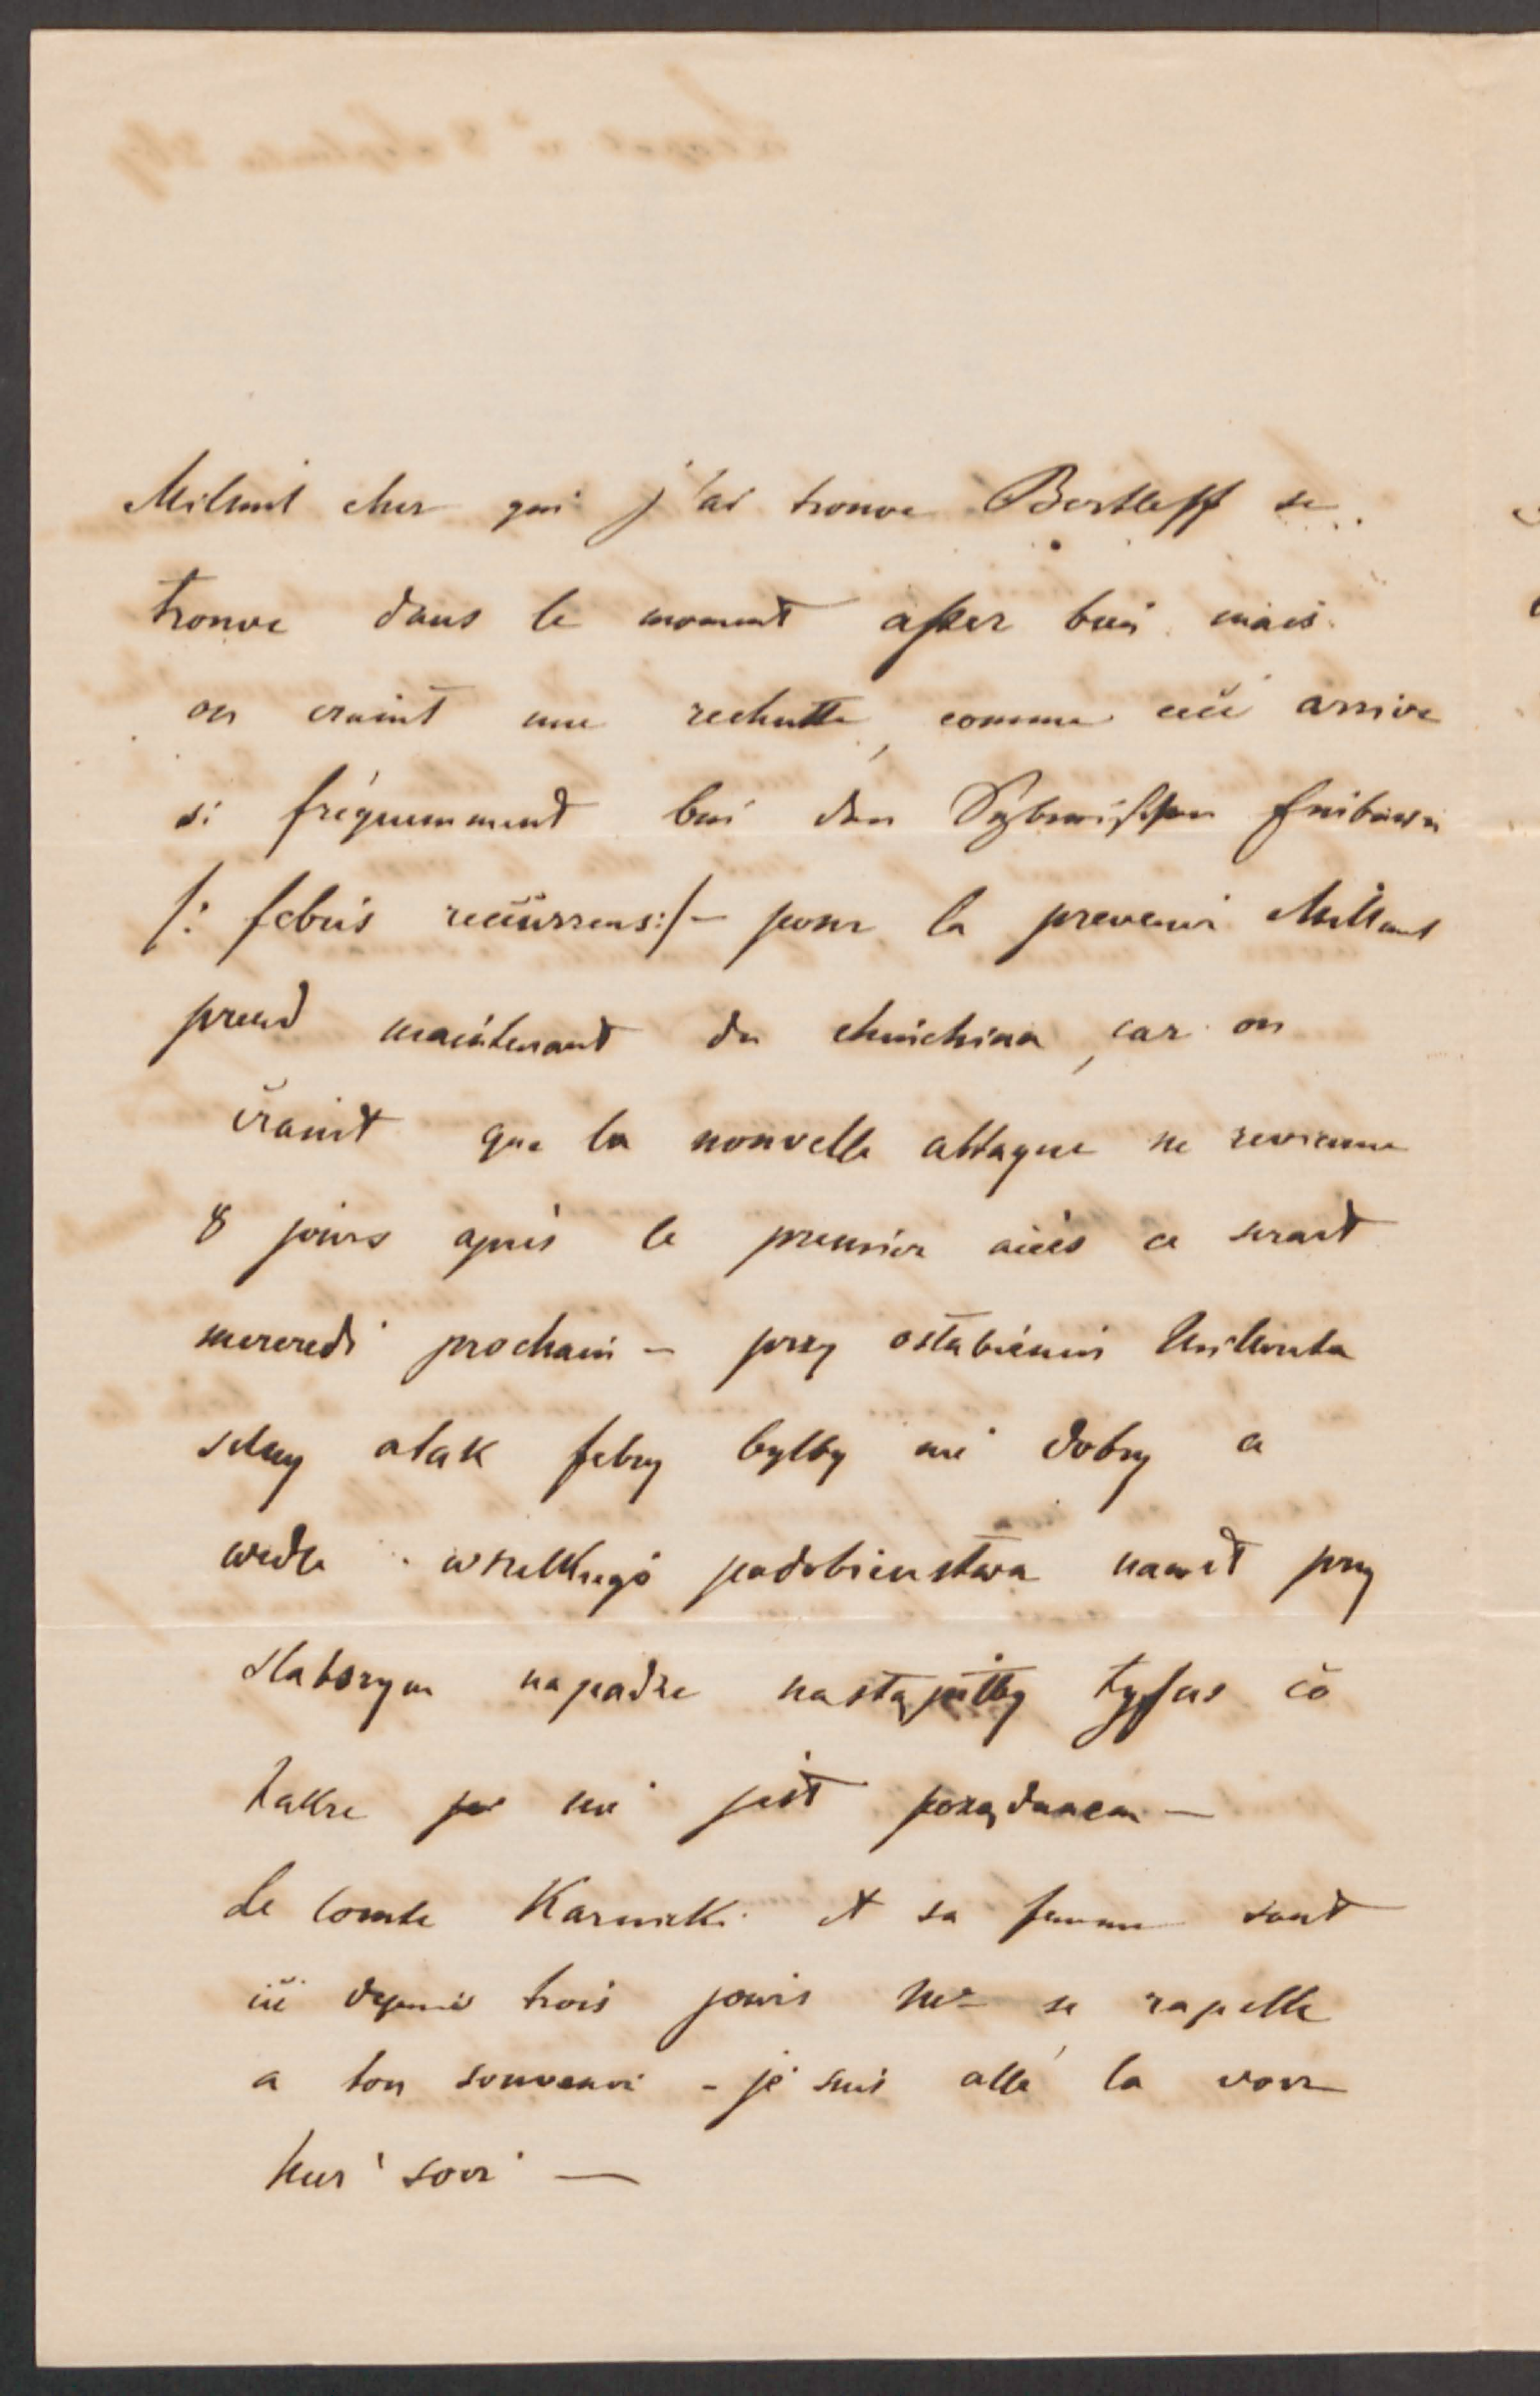 Milunś cher qui j'ai trouve Bertleff se
trouve dans le moment assez bien mais
on craint une rechutte, comme ceci arrive
si fréquemment bei den
/: febris recurrens:/ – pour la prevenir Milunś
prend maintenant du chinchina, car on
craint que la nouvelle attaque ne revienne
8 jours après le premier accès ce serait
mercredi prochain – przy osłabieniu Milunia
silny atak febry byłby nie dobry a
wedle wszelkiego podobieństwa nawet przy
słabszym napadzie nastąpiłby tyfus co
także nie jest pożądanem –
Le comte Karnicki et sa femme sont
ici depuis trois jours Me se rapelle
a ton souvenir – je suis allé la voir
hier soir –